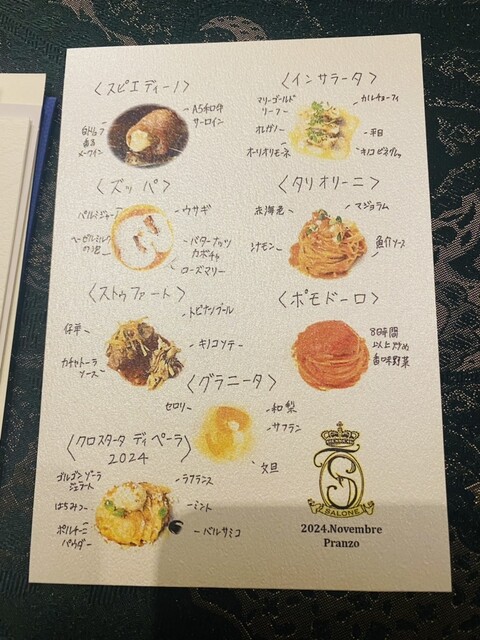 〈スピエディーノ〉
A5和牛
サーロイン
メークイン
〈インサラータ〉
マリーゴールド
リーフ
オレガノ
オーリオリモーネ
カルチョーフィ
平目
キノコビネグレ
〈ズッパ〉
パルミジャーノ
ヘーゼルミルク
の泡
ウサギ
バターナッツ
カボチャ
ローズマリー
〈タリオリーニ〉
赤海老
シナモン
マジョラム
魚介ソース
〈ストゥファート〉
仔羊
カチャトーラ
ソース
トピナンブール
キノコソテー
〈ポモドーロ〉
8時間
以上炒め
香味野菜
〈グラニータ〉
セロリ
和梨
サフラン
文旦
〈クロスタータ ディ ペーラ〉
2024
ゴルゴンゾーラ
ジェラート
はちみつ
ポルチーニ
パウダー
ラフランス
ミント
バルサミコ
SALONE
2024.Novembre
Pranzo